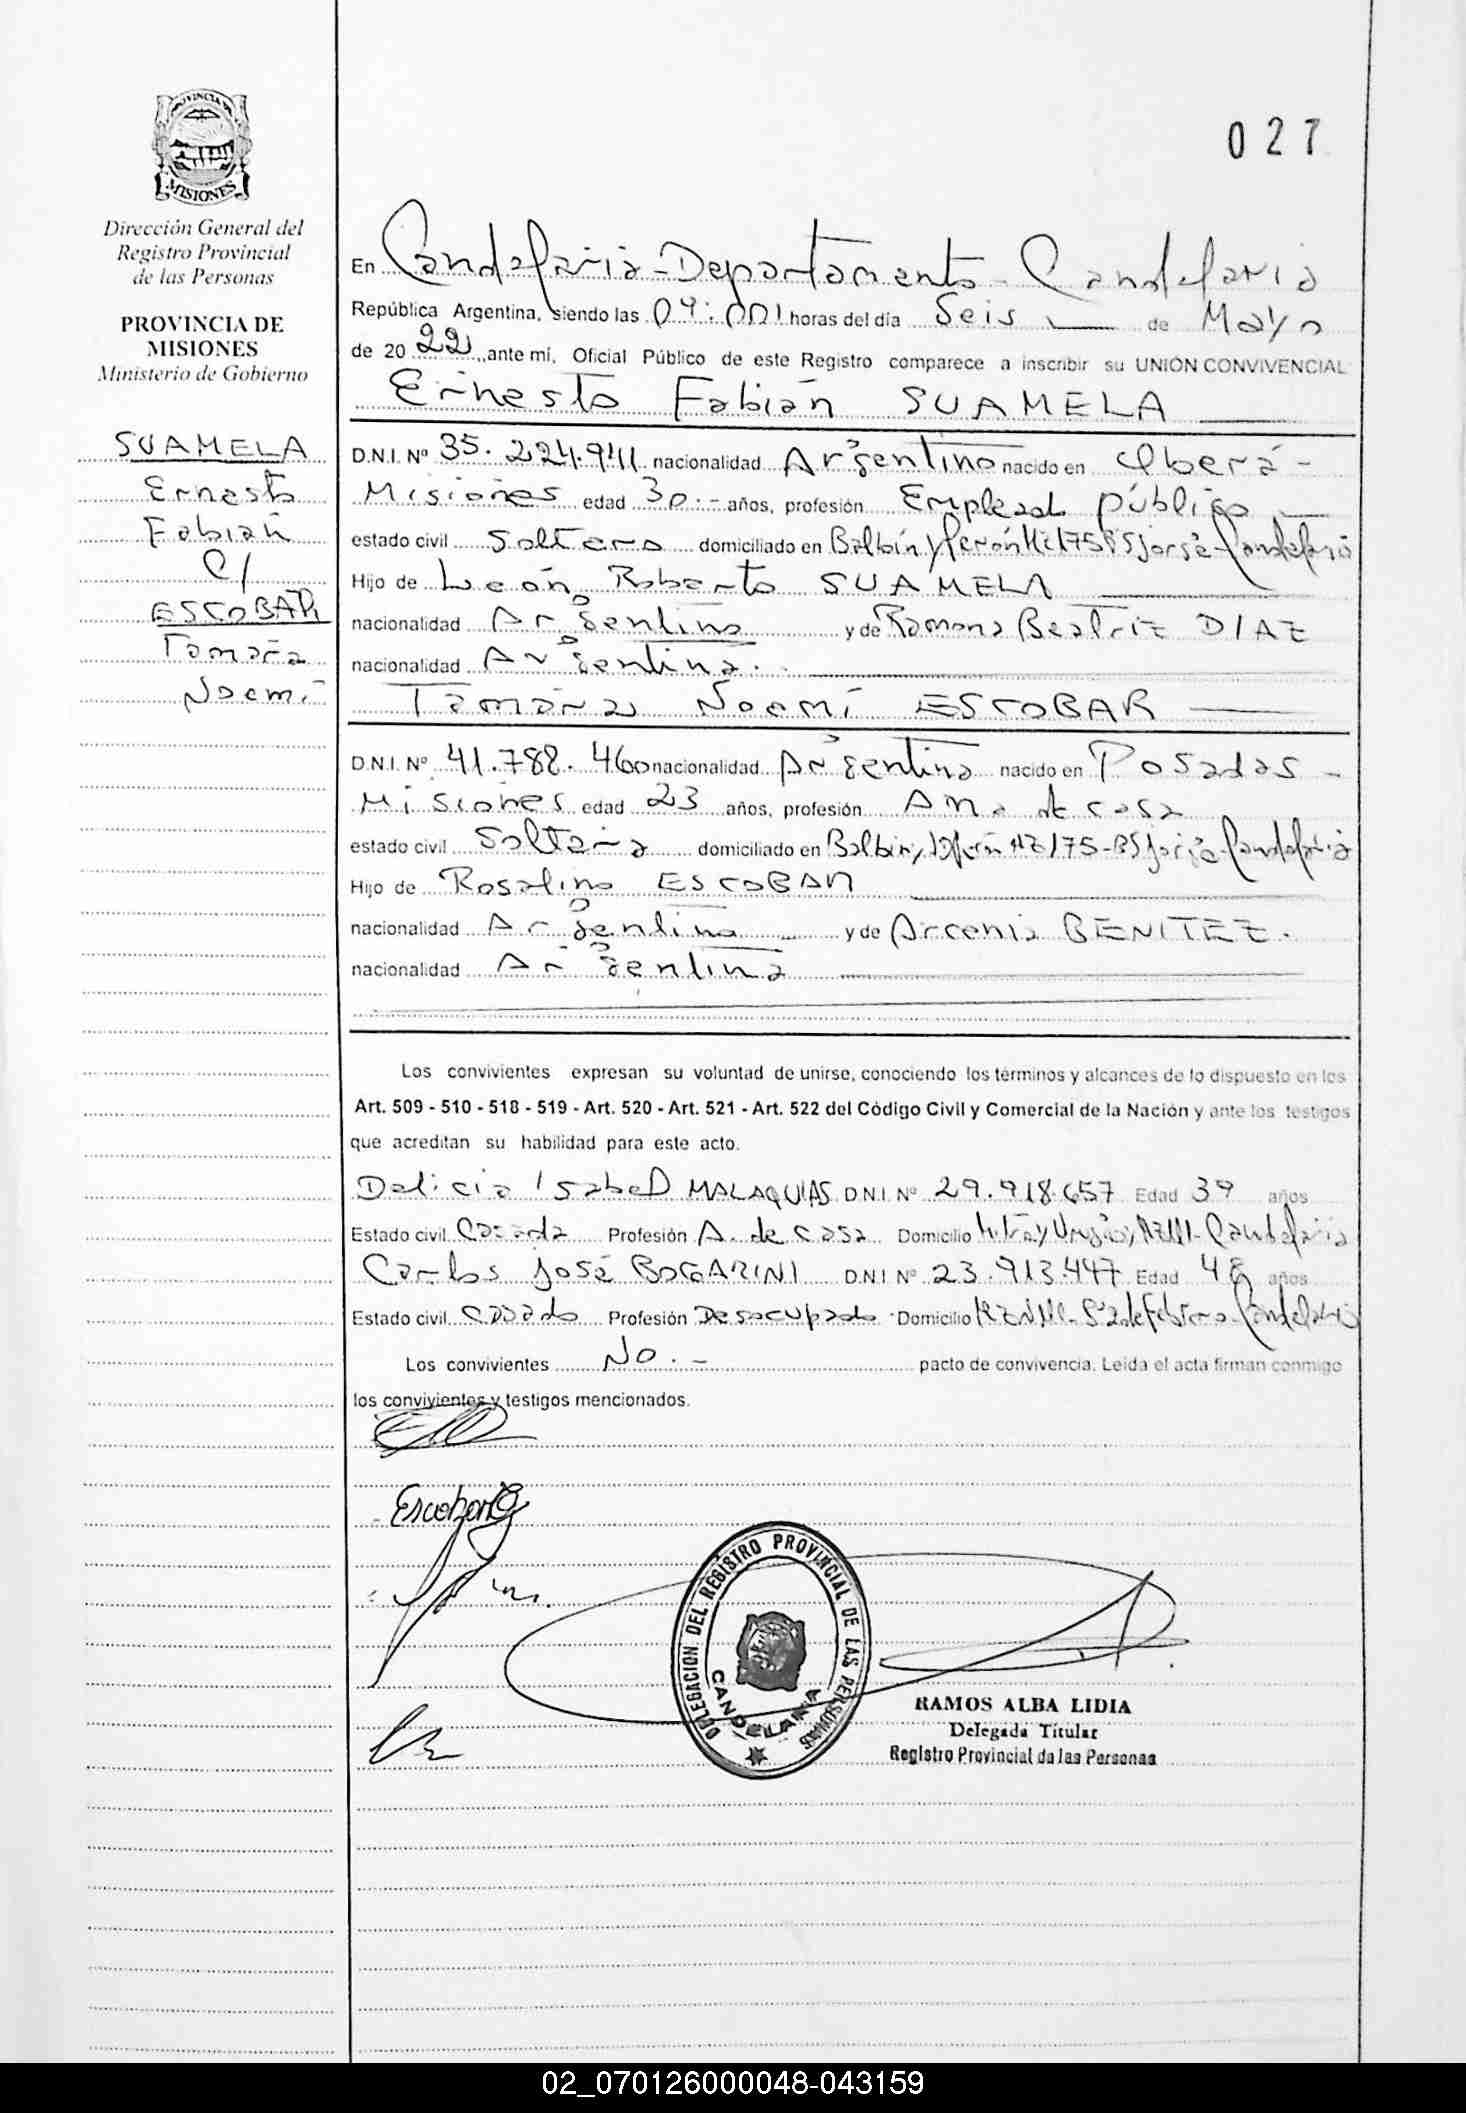 PROVINCIA DE
MISIONES
Dirección General del
Registro Provincial
de las Personas
PROVINCIA DE
MISIONES
Ministerio de Gobierno
SUAMELA
Ernesto
Fabián
C/
ESCOBAR
Tamara
Noemí
027
En Candelaria - Departamento - Candelaria
República Argentina, siendo las 09:00 horas del día Seis de Mayo
de 2022 ante mí, Oficial Público de este Registro comparece a inscribir su UNIÓN CONVIVENCIAL
Ernesto Fabián SUAMELA
D.N.I. Nº 35.224.941 nacionalidad Argentino nacido en Oberá -
Misiones edad 30.- años, profesión Empleado público
estado civil Soltero domiciliado en Balbín y Perón Candelaria
Hijo de León Roberto SUAMELA
nacionalidad Argentino y de Ramona Beatriz DIAZ
nacionalidad Argentina.
Tamara Noemí ESCOBAR
D.N.I. Nº 41.788.460 nacionalidad Argentina nacido en Posadas -
Misiones edad 23 años, profesión Ama de casa
estado civil Soltera domiciliado en Balbín y Perón Candelaria
Hijo de Rosalino ESCOBAR
nacionalidad Argentino y de Arcenia BENITEZ.
nacionalidad Argentina
Los convivientes expresan su voluntad de unirse, conociendo los términos y alcances de lo dispuesto en los
Art. 509 - 510 - 518 - 519 - Art. 520 - Art. 521 - Art. 522 del Código Civil y Comercial de la Nación y ante los testigos
que acreditan su habilidad para este acto.
Delicia Isabel MALAQUIAS D.N.I. Nº 29.918.657 Edad 39 años
Estado civil Casada Profesión A. de casa Domicilio Candelaria
Carlos José BOGARINI D.N.I Nº 23.913.447 Edad 48 años
Estado civil Casado Profesión Desocupado Domicilio Candelaria
Los convivientes No.- pacto de convivencia. Leída el acta firman conmigo
los convivientes y testigos mencionados.
DELEGACION DEL REGISTRO PROVINCIAL DE LAS PERSONAS
CANDELARIA
RAMOS ALBA LIDIA
Delegada Titular
Registro Provincial de las Personas
02_070126000048-043159